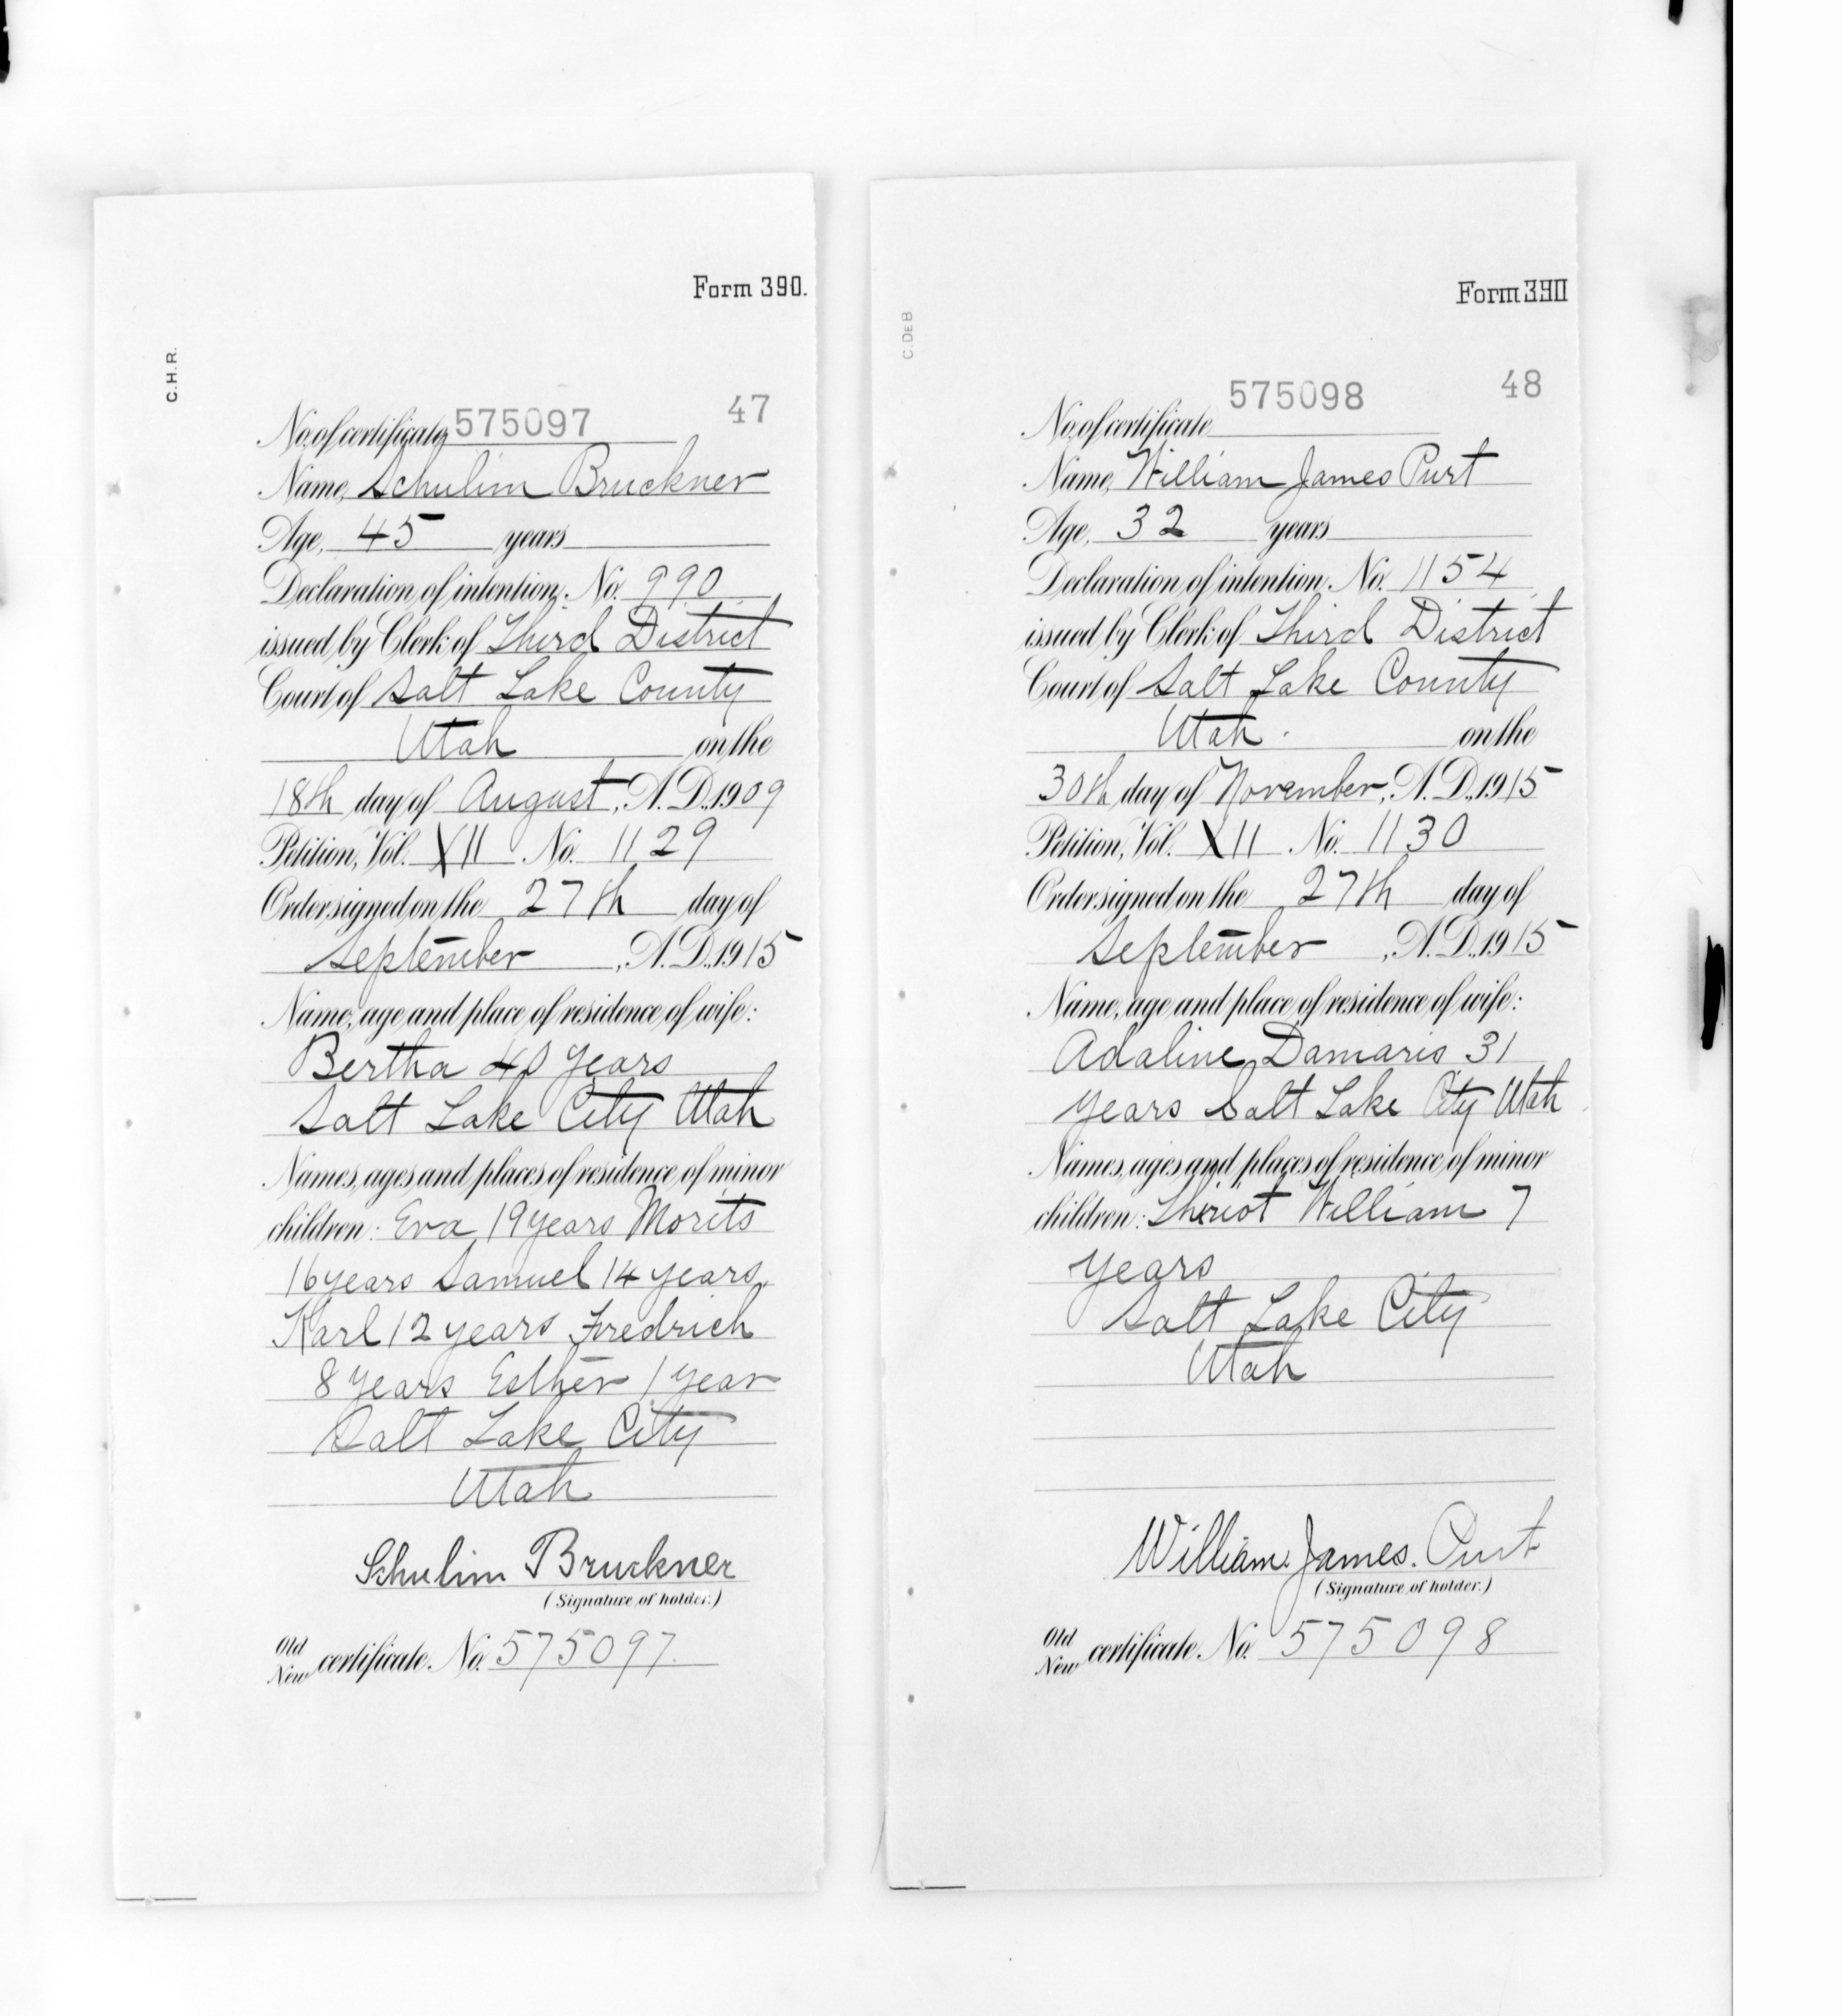 Form 390.
C.H.R.
47
No. of certificate, 575097
Name, Schulim Bruckner
Age, 45 years
Declaration of intention, No. 990
issued by Clerk of Third District
Court of Salt Lake County
Utah on the
18th day of August, A.D. 1909
Petition, Vol. XII No. 1129
Order signed on the 27th day of
September, A.D. 1915
Name, age and place of residence of wife:
Bertha 40 years
Salt Lake City Utah
Names, ages and places of residence of minor
children: Eva 19 years Morits
16 years Samuel 14 years
Karl 12 years Fredrich
8 years Esther 1 year
Salt Lake City
Utah
Schulim Bruckner
(Signature of holder.)
Old
New certificate No. 575097.
Form 390
C. DE B
48
No. of certificate 575098
Name, William James Purt
Age, 32 years
Declaration of intention, No. 1154
issued by Clerk of Third District
Court of Salt Lake County
Utah. on the
30th day of November, A.D. 1915
Petition, Vol. XII No. 1130
Order signed on the 27th day of
September, A.D. 1915
Name, age and place of residence of wife:
Adaline Damaris 31
years Salt Lake City Utah
Names, ages and places of residence of minor
children: Theriot William 7
years
Salt Lake City
Utah
William James. Purt
(Signature of holder.)
Old
New certificate No. 575098